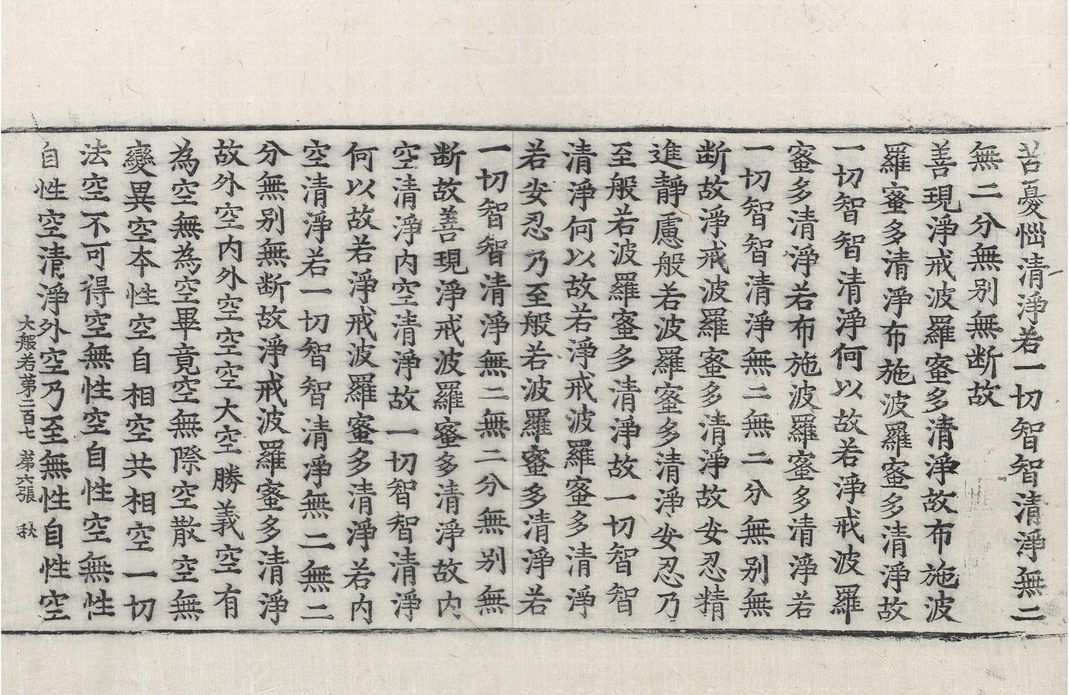 苦憂惱清淨若一切智智清淨無二
無二分無別無断故
善現淨戒波羅蜜多清淨故布施波
羅蜜多清淨布施波羅蜜多清淨故
一切智智清淨何以故若淨戒波羅
蜜多清淨若布施波羅蜜多清淨若
一切智智清淨無二無二分無別無
断故淨戒波羅蜜多清淨故安忍精
進靜慮般若波羅蜜多清淨安忍乃
至般若波羅蜜多清淨故一切智智
清淨何以故若淨戒波羅蜜多清淨
若安忍乃至般若波羅蜜多清淨若
一切智智清淨無二無二分無別無
断故善現淨戒波羅蜜多清淨故内
空清淨内空清淨故一切智智清淨
何以故若淨戒波羅蜜多清淨若内
空清淨若一切智智清淨無二無二
分無別無断故淨戒波羅蜜多清淨
故外空内外空空空大空勝義空有
為空無為空畢竟空無際空散空無
變異空本性空自相空共相空一切
法空不可得空無性空自性空無性
自性空清淨外空乃至無性自性空
大般若第二百七 第六張 秋